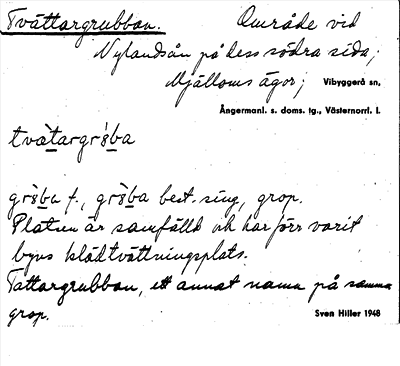 Tvättargrubban. Område vid
Nylandsån på dess södra sida;
Mjälloms ägor; Vibyggerå sn,
Ångermanl. s. doms. tg., Västernorrl. l.
tvätargròba
gròba f., gròba best. sing., grop.
Platsen är samfälld och har förr varit
byns klädtvättningsplats.
Tattargrubban, ett annat namn på samma
grop. Sven Hiller 1948